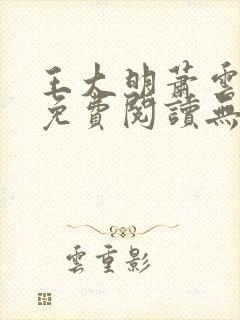 王大明蕭雲
免費閱讀無
雲重影